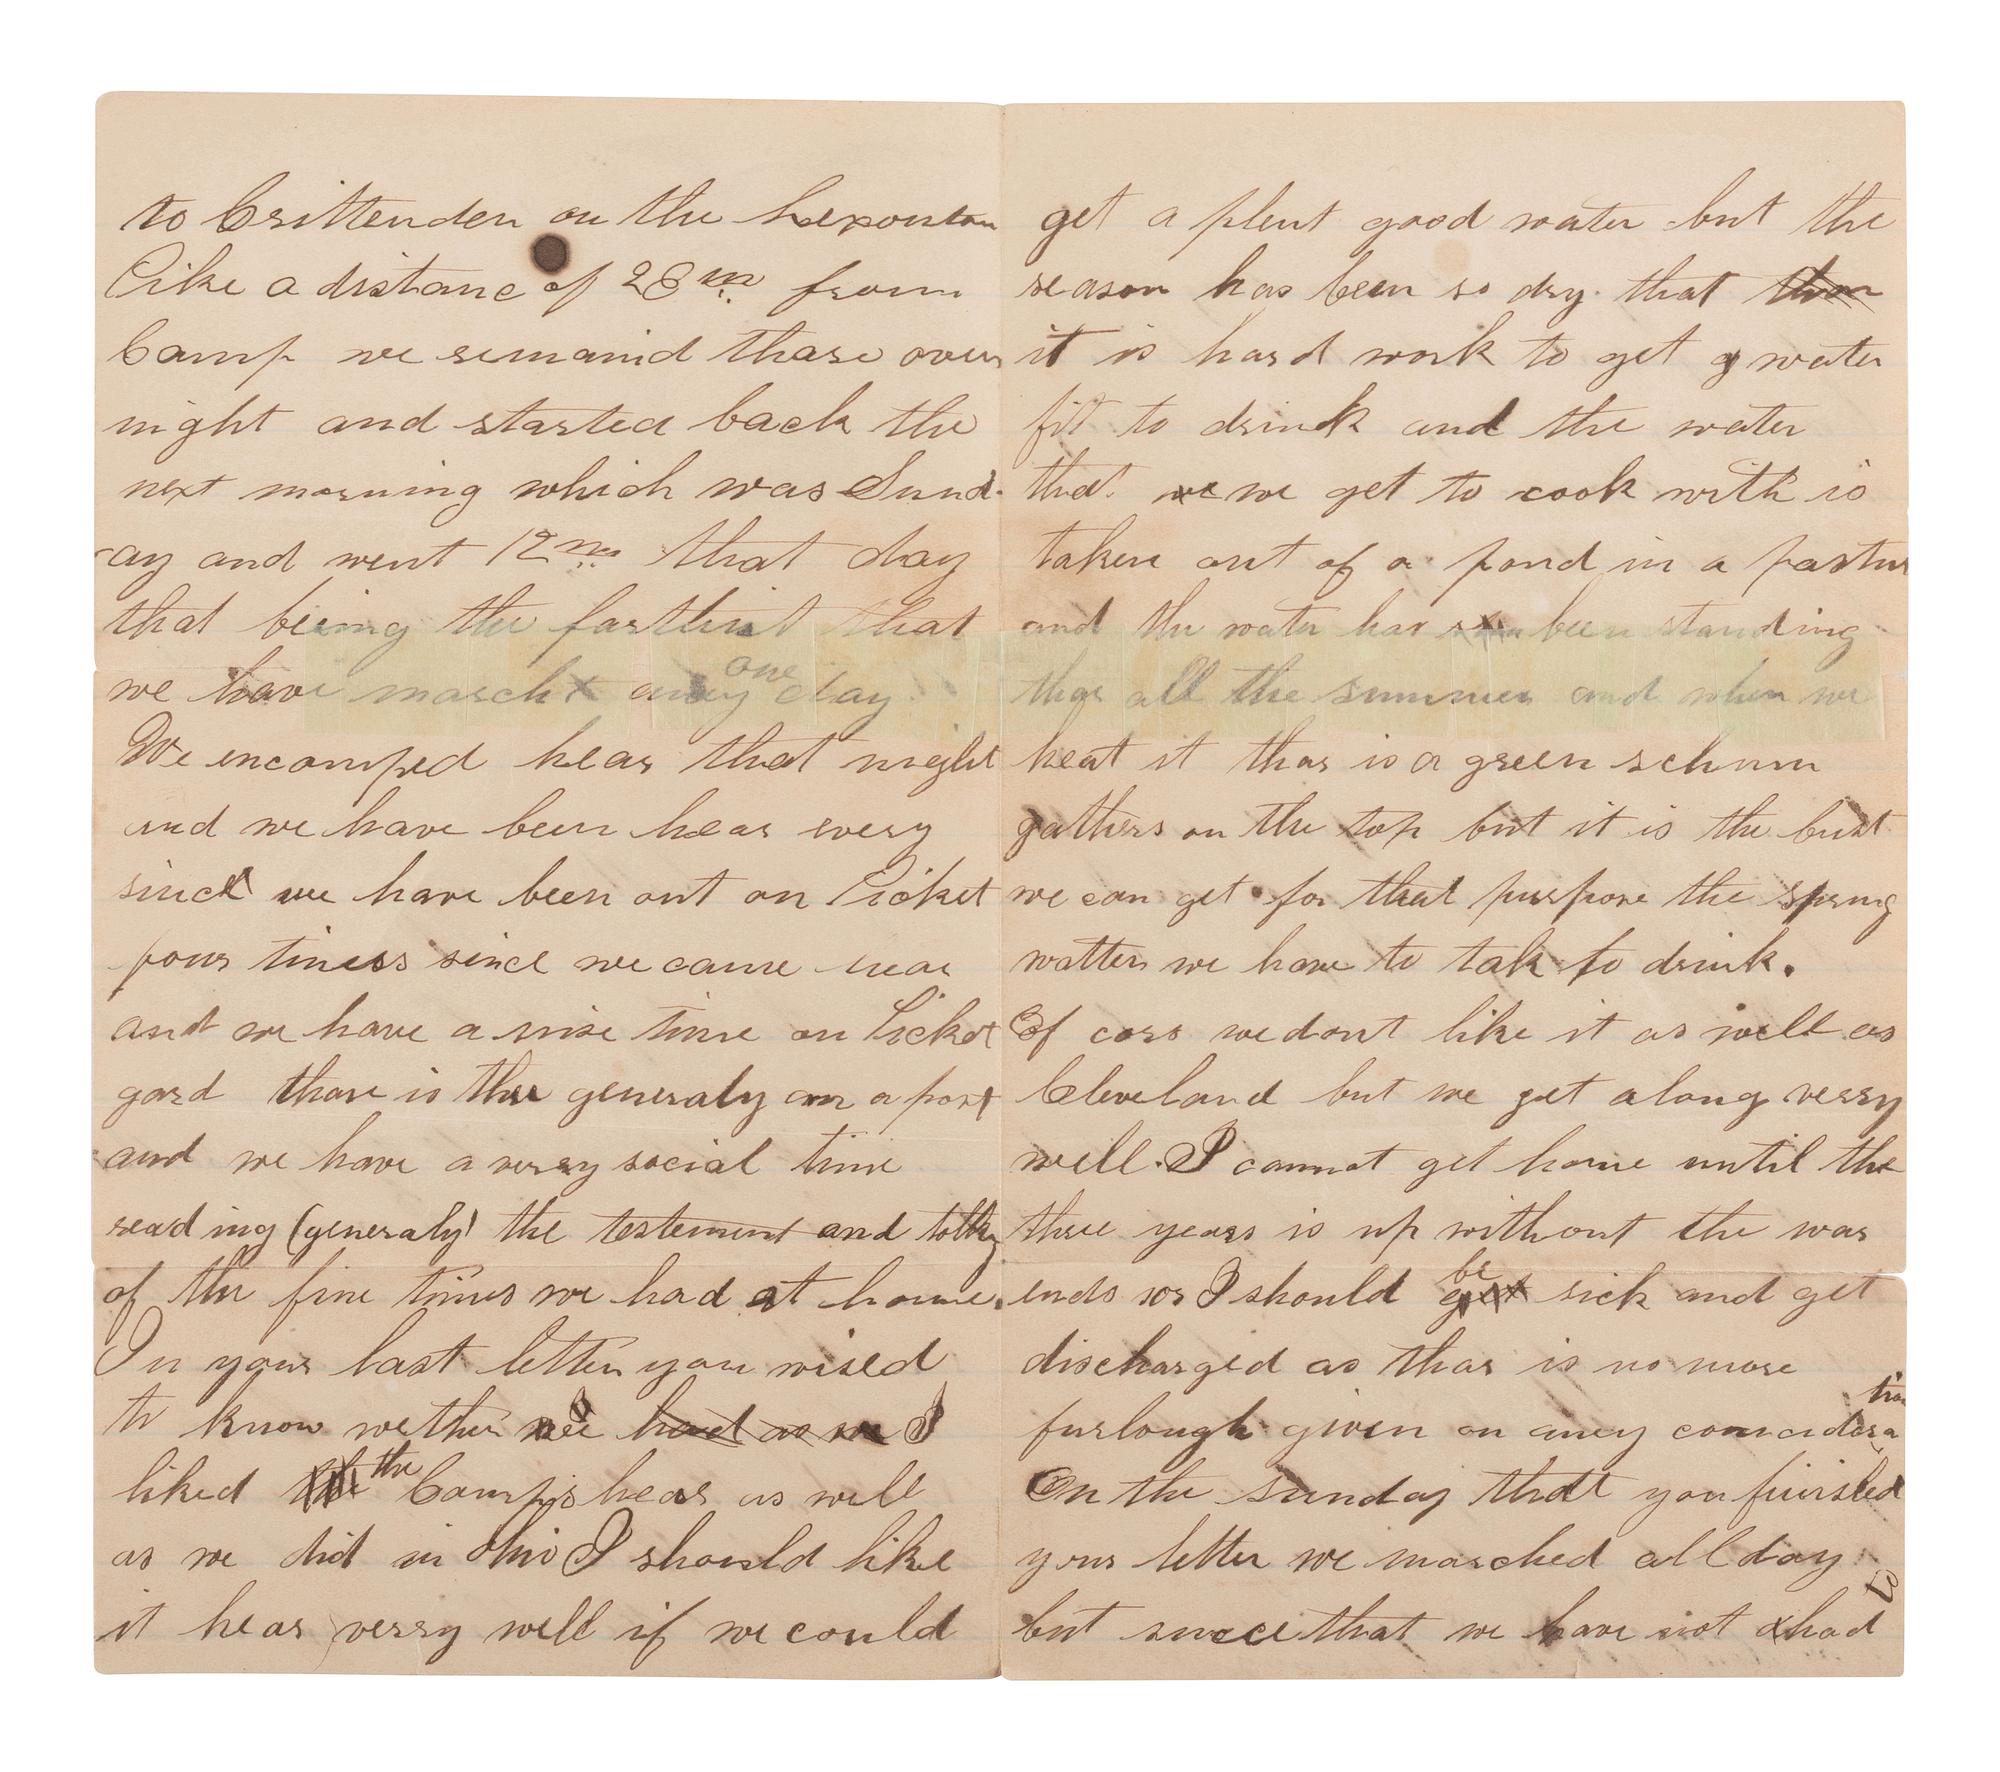 to Crittenden on the Lexonton
Pike a distanc of 28 m. from
Camp we remaind thare over
night and started back the
next morning which was Sund-
ay and went 12 m. that day
that being the farthist that
we have march any one day.
We encamped hear that night
and we have been hear every
since we have been out on Picket
four times since we came hear
and we have a nise time on Picket
gard thare is three generaly on a post
and we have a verry social time
reading (generaly) the testement and talking
of the fine times we had at home.
In your last letter you wised
to know wether had as we I
liked the Camps hear as well
as we did in Ohio I should like
it hear verry well if we could
get a plent good water but the
season has been so dry that than
it is hard work to get g water
fit to drink and the water
that we we get to cook with is
taken out of a pond in a pastur
and the water has been standing
thar all the summer and when we
heat it thar is a green schum
gathers on the top but it is the best
we can get for that purpose the spring
watter we have to tak to drink.
Of cors we dont like it as well as
Cleveland but we get along verry
well. I cannot get home until the
three years is up without the war
ends or I should be get sick and get
discharged as thar is no more
furlough given on aney considera
tion
On the sunday that you finished
your letter we marched all day
but since that we have not had